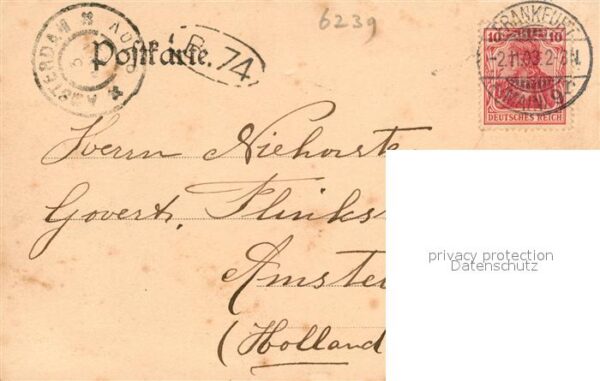 6239
AMSTERDAM
Postkarte.
Br. 74
FRANKFURT
-2.11.03.2-3N.
(MAIN) 9
10 10
DEUTSCHES REICH
Herrn Niehorst
Govert Flinks
Amste
(Holland
privacy protection
Datenschutz